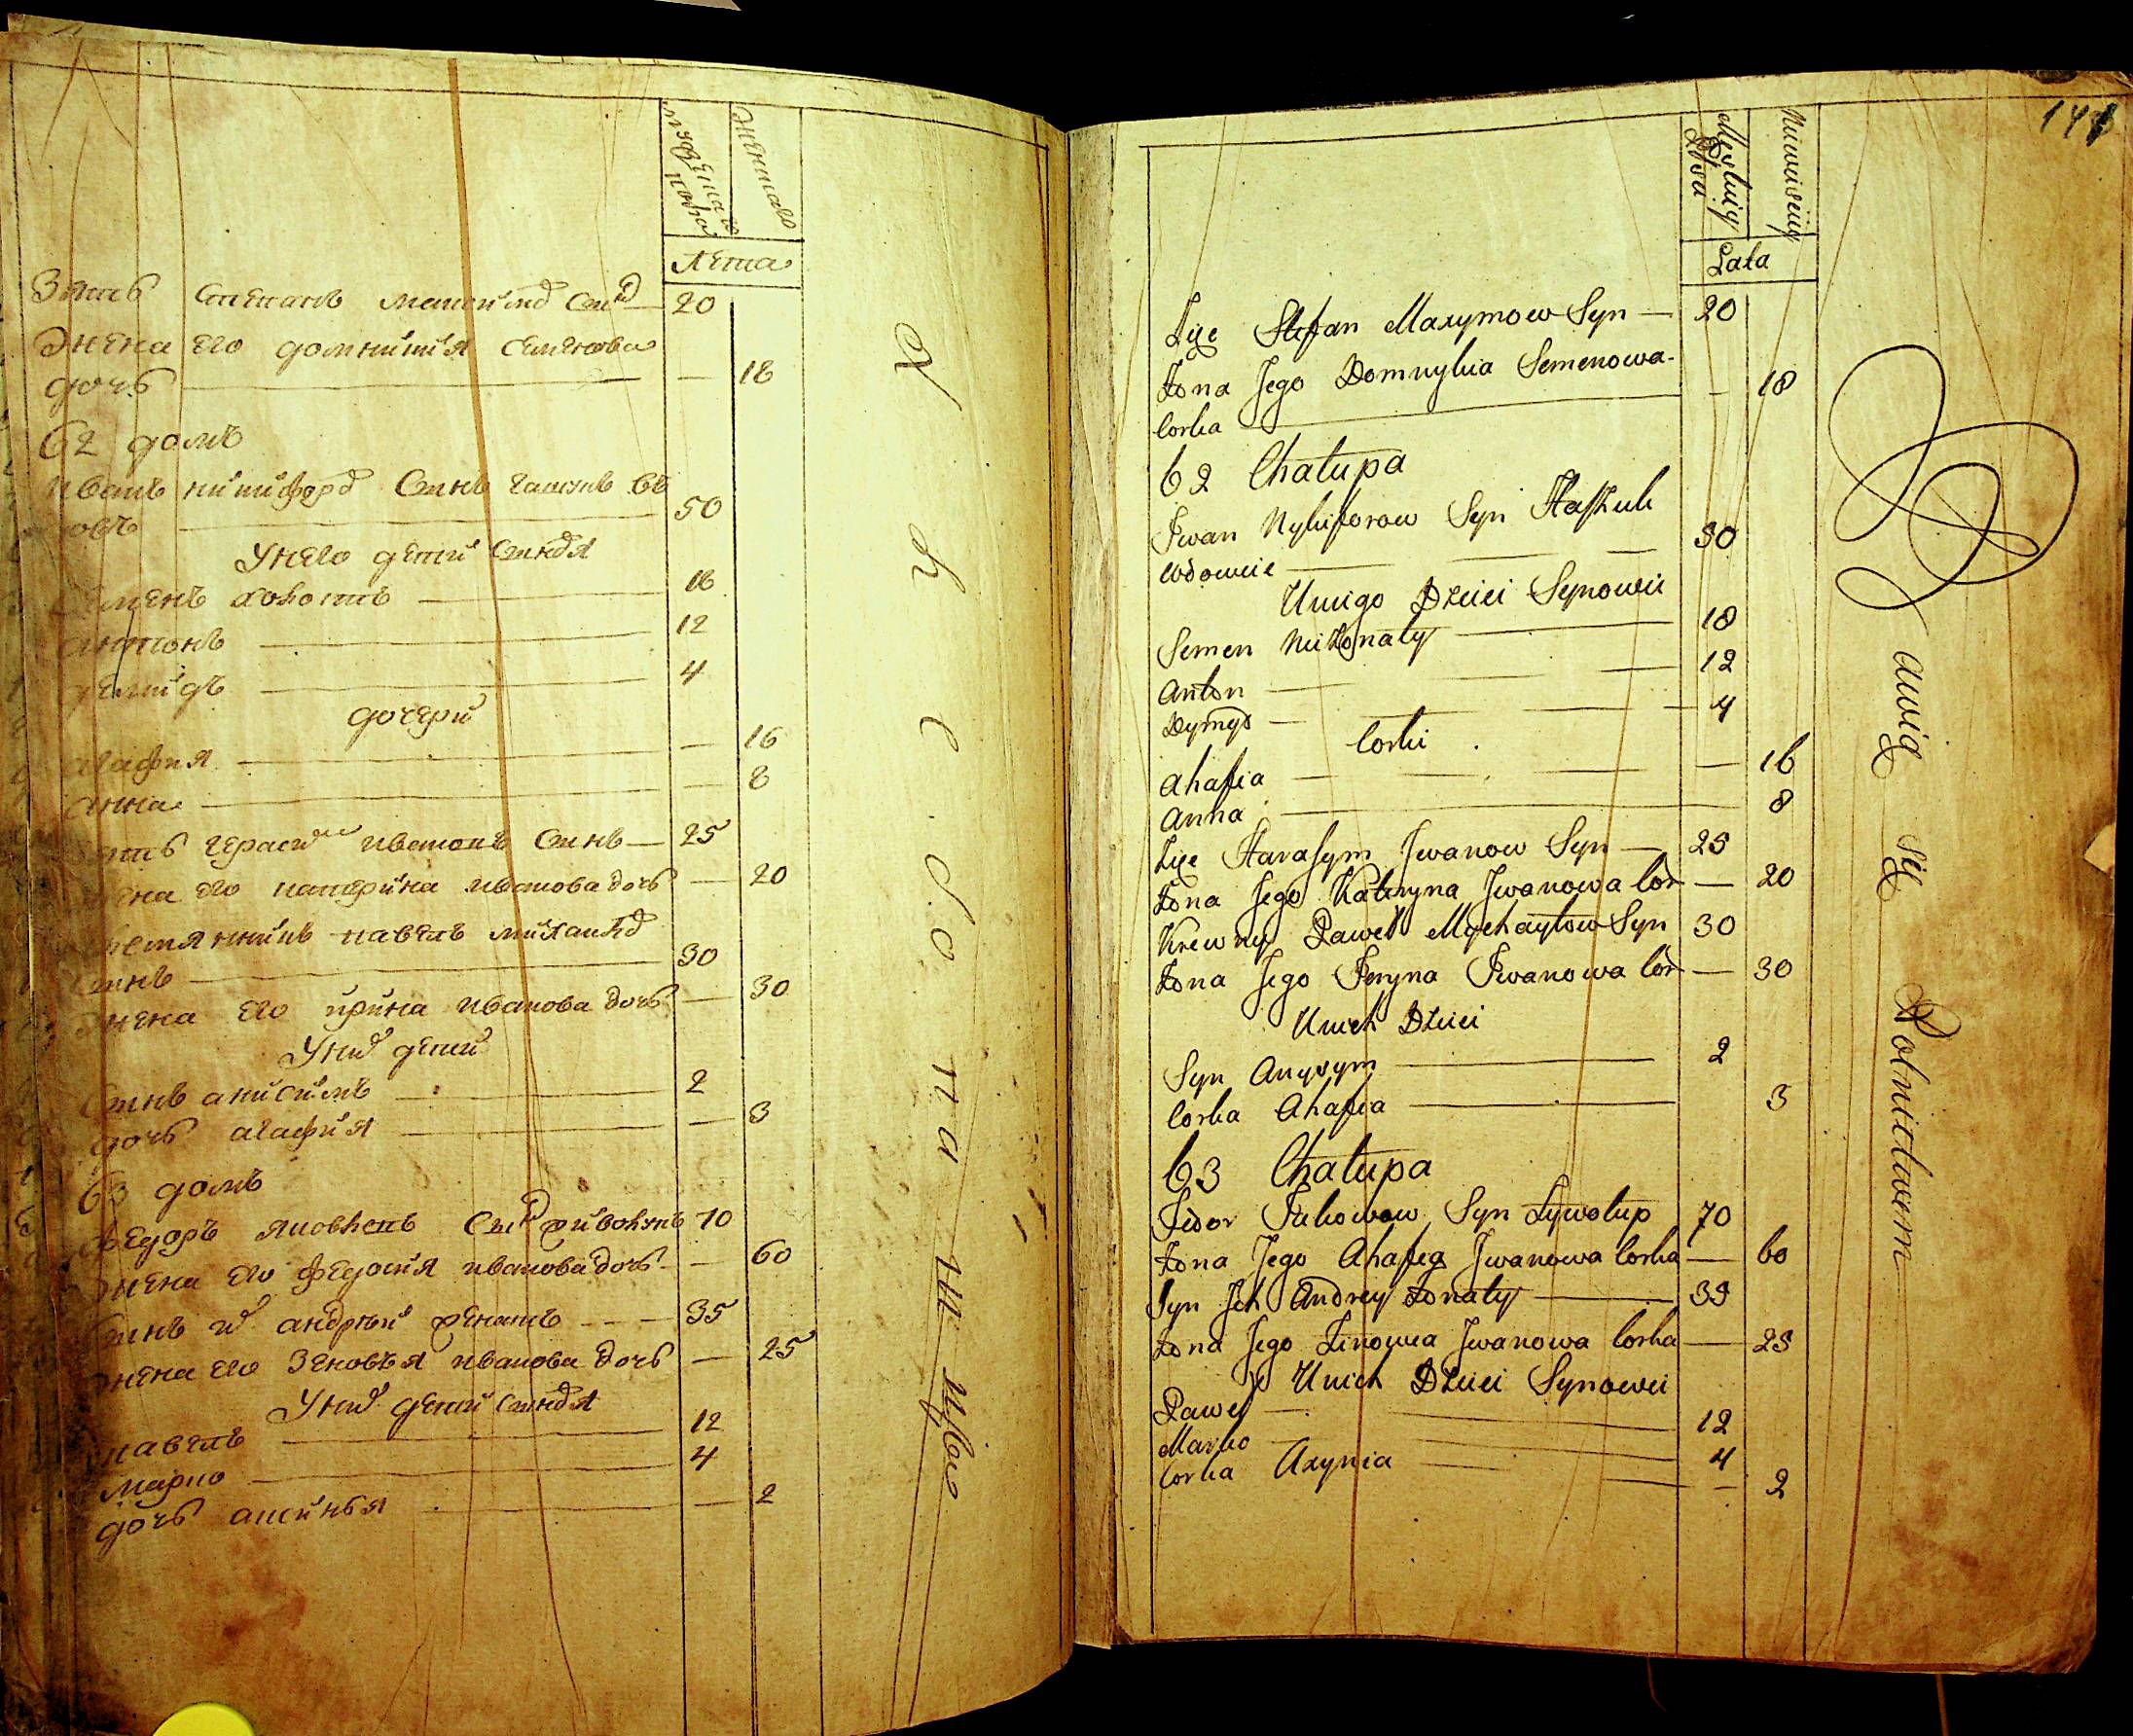 Лета
Зять Степанъ Максимов Сынъ — 20
Жена его домникия семенова
дочь — 18
62 домъ
иванъ никифоров Сынъ гашукъ вд
овъ — 50
У него детей Синовя
Семенъ холостъ — 18
антонъ — 12
демидъ — 4
дочери
агафия — 16
анна — 8
Зять герасим ивановъ Синъ — 25
жена его катерина иванова дочь — 20
павелъ михайлов
Синъ — 30
жена его ирина иванова дочь — 30
У них детей
Синъ анисимъ — 2
дочь агафия — 3
63 домъ
Федоръ яковлевъ Сын живолупъ 70
жена его федосия иванова дочь — 60
Синъ их андрей женатъ — 35
жена его Зеновья иванова дочь — 25
У них детей Синовя
павелъ — 12
марко — 4
дочь аксинья — 2
144
Męskiey
Niewieściey
Lata
Zięc Stefan Maxymow Syn — 20
Żona Jego Domnykia Semenowa
Corka — 18
62 Chałupa
Jwan Nykiforow Syn Haszuk
Wdowiec — 50
U niego Dzieci Synowie
Semen Nieżonaty — 18
Anton — 12
Dymyd — 4
Corki
Ahafia — 16
Anna — 8
Zięc Harasym Jwanow Syn — 25
Żona Jego Kateryna Jwanowa Cor — 20
Krewny Paweł Mychayłow Syn 30
Żona Jego Jeryna Jwanowa Cor — 30
U nich Dzieci
Syn Anysym — 2
Corka Ahafia — 3
63 Chałupa
Fedor Jakowow Syn Żywołup 70
Żona Jego Ahafia Jwanowa Corka — 60
Syn Jch Andrey Żonaty — 35
Żona Jego Zinowia Jwanowa Corka — 25
U nich Dzieci Synowie
Paweł — 12
Marko — 4
Corka Axynia — 2